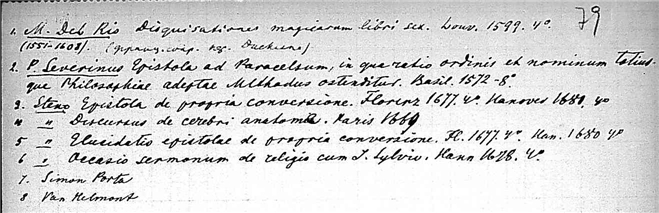 79
1. M. Del Rio Disquisationes magicarum libri sex. Louv. 1599. 4º.
(1551-1608). Duchesne)
2. P. Severinus Epistola ad Paracelsum, in qua ratio ordinis et nominum totius-
que Philosophiae adeptae Methodus ostenditur. Basil. 1572 - 8º
3 Steno Epistola de propria conversione. Florenz 1677. 4º. Hanover 1680. 4º
4 " Discursus de cerebri anatomia. Paris 1669
5 " Elucidatio epistolae de propria conversione. Fl. 1677. 4º. Han. 1680 4º
6 " Occasio sermonum de religio cum J. Sylvio. Hann 1678. 4º.
7. Simon Porta
8 Van Helmont